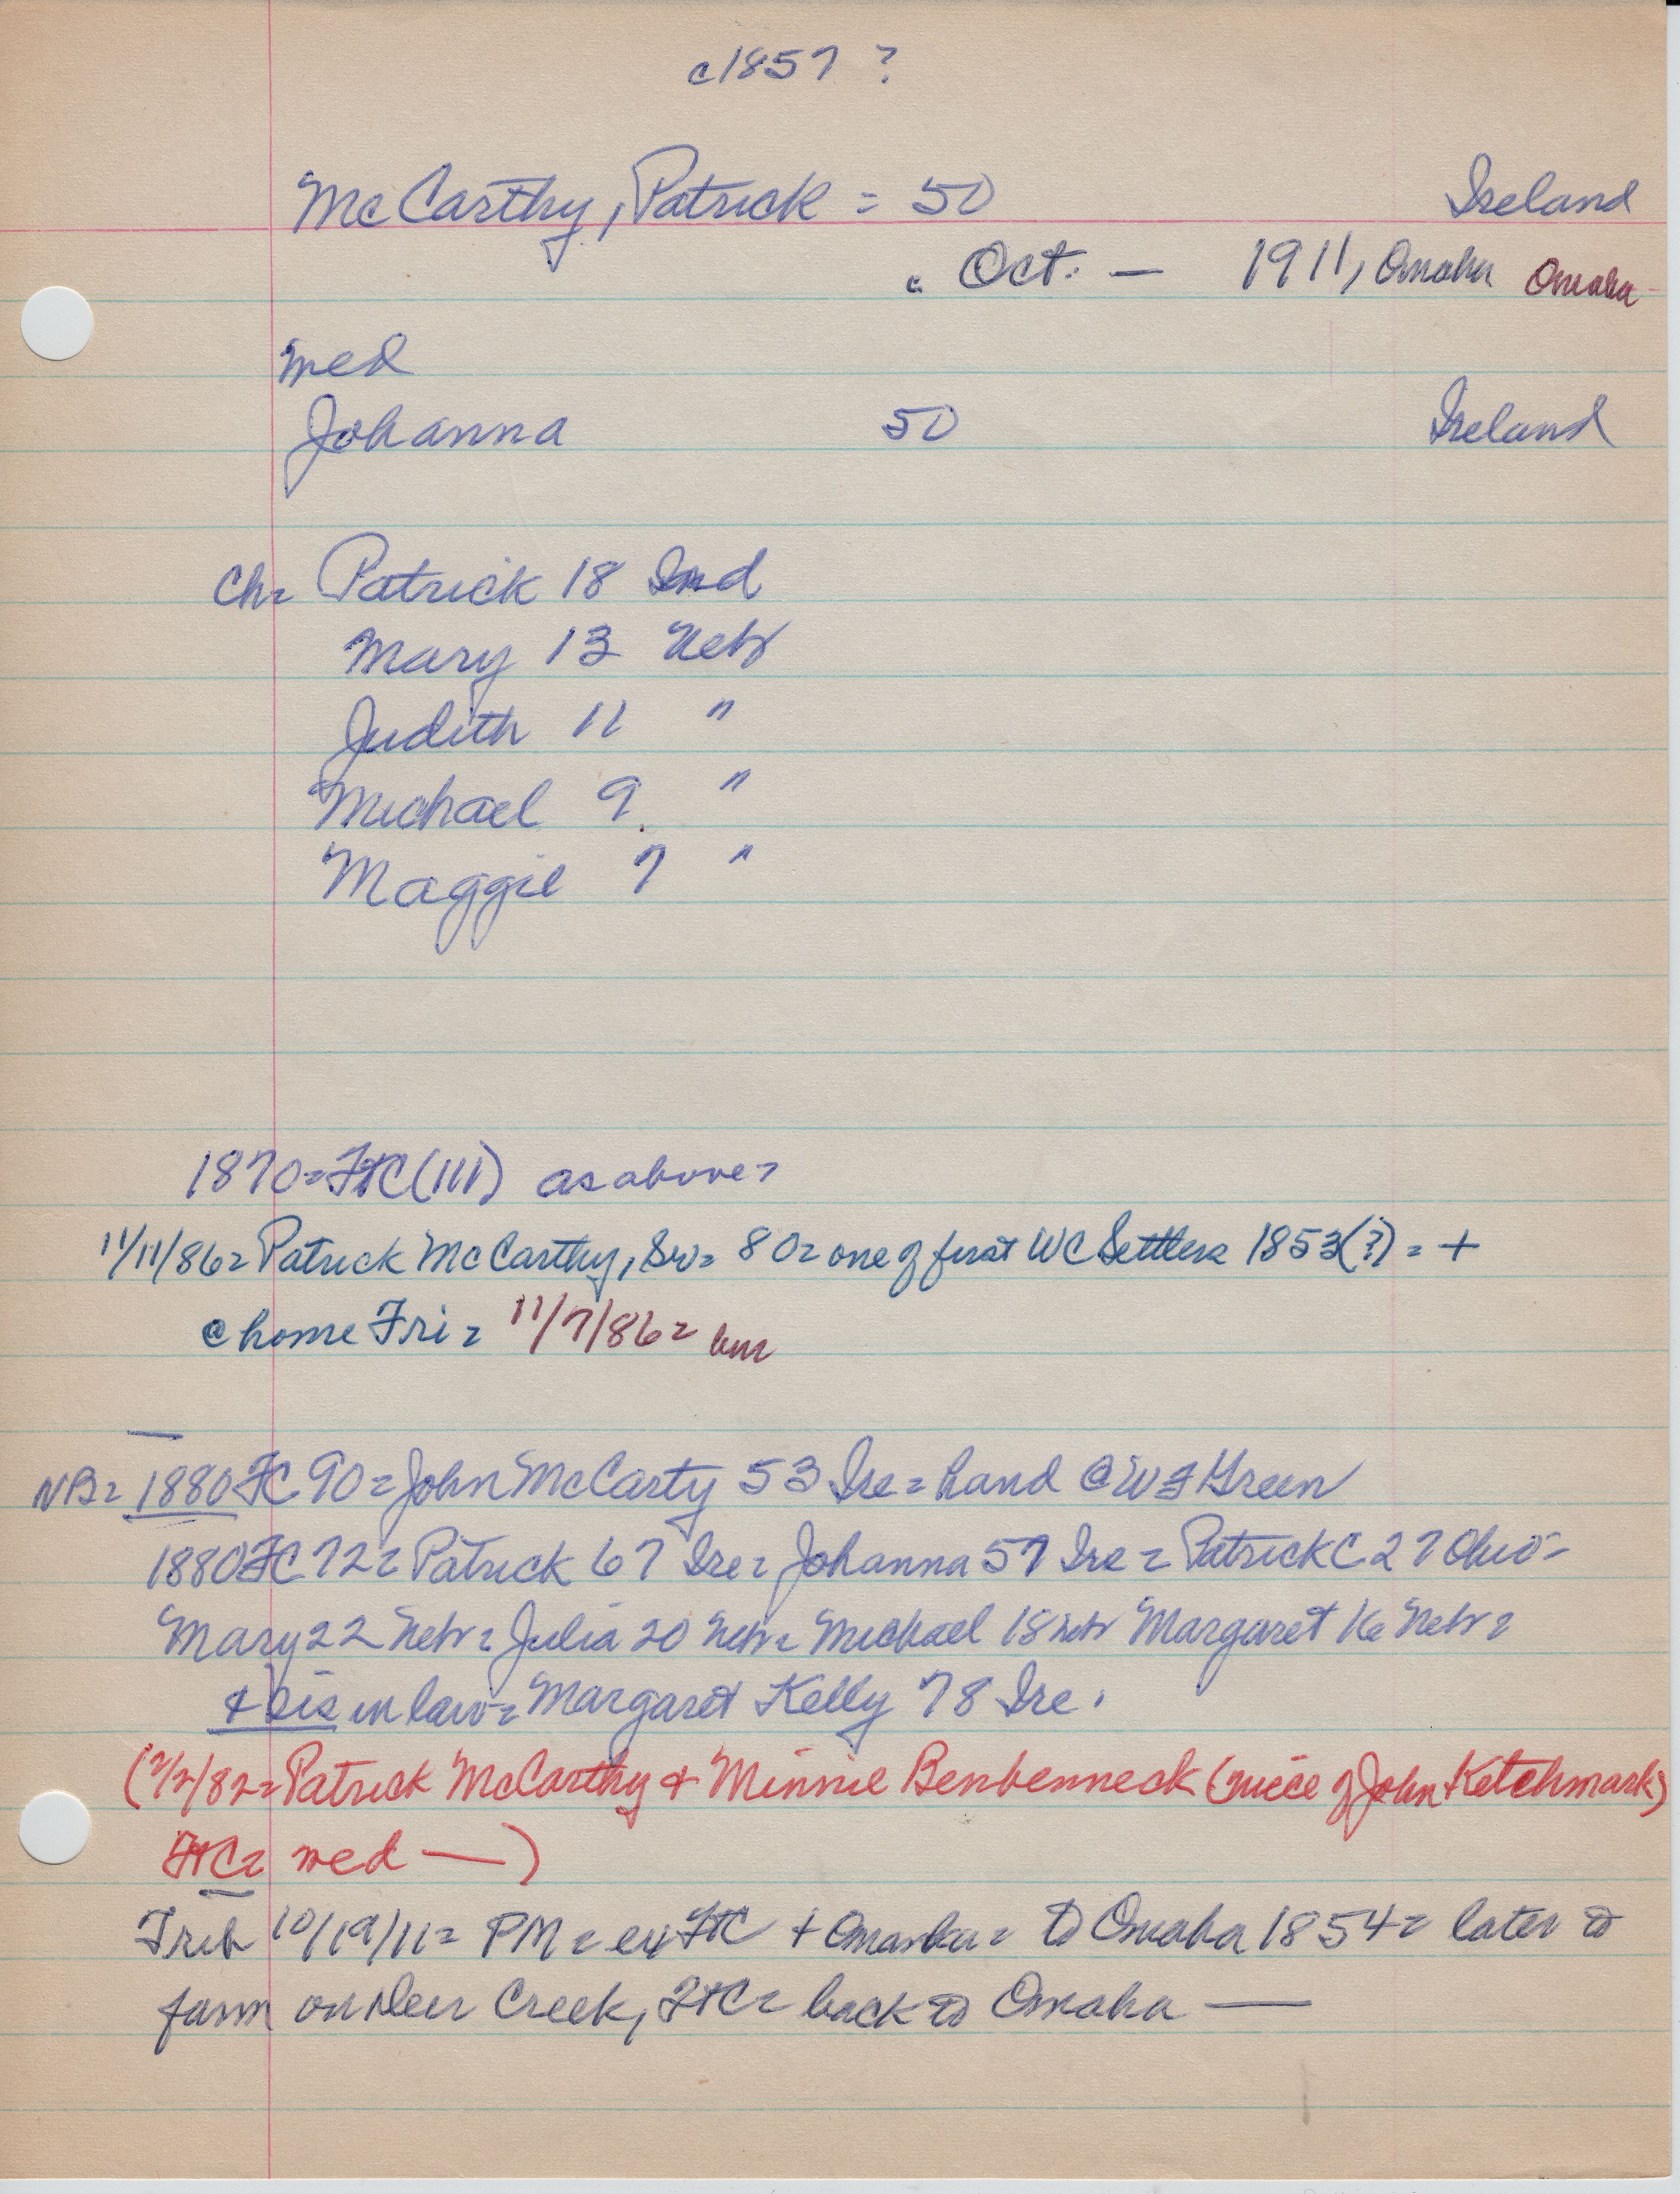 c1857 ?
McCarthy, Patrick = 50 Ireland
" Oct. — 1911, Omaha Omaha
med
Johanna 50 Ireland
Ch= Patrick 18 Ind
Mary 13 Nebr
Judith 11 "
Michael 9 "
Maggie 7 "
1870=FtC(111) as above=
11/11/86= Patrick McCarthy, Sr= 80= one of first WC Settlers 1853(?) = +
@ home Fri= 11/7/86=
NB= 1880 FC 90= John McCarty 53 Ire= hand @ W F Green
1880 FC 72= Patrick 67 Ire= Johanna 57 Ire= Patrick C 27 Ohio=
Mary 22 Nebr= Julia 20 Nebr= Michael 18 Nebr Margaret 16 Nebr=
+ sis in law= Margaret Kelly 78 Ire.
(2/2/82= Patrick McCarthy + Minnie Benbenneck (niece of John Ketchmark)
FtC= med —)
Trib 10/19/11= PM= ex FtC + Omaha= to Omaha 1854= later to
farm on Deer Creek, FtC= back to Omaha —